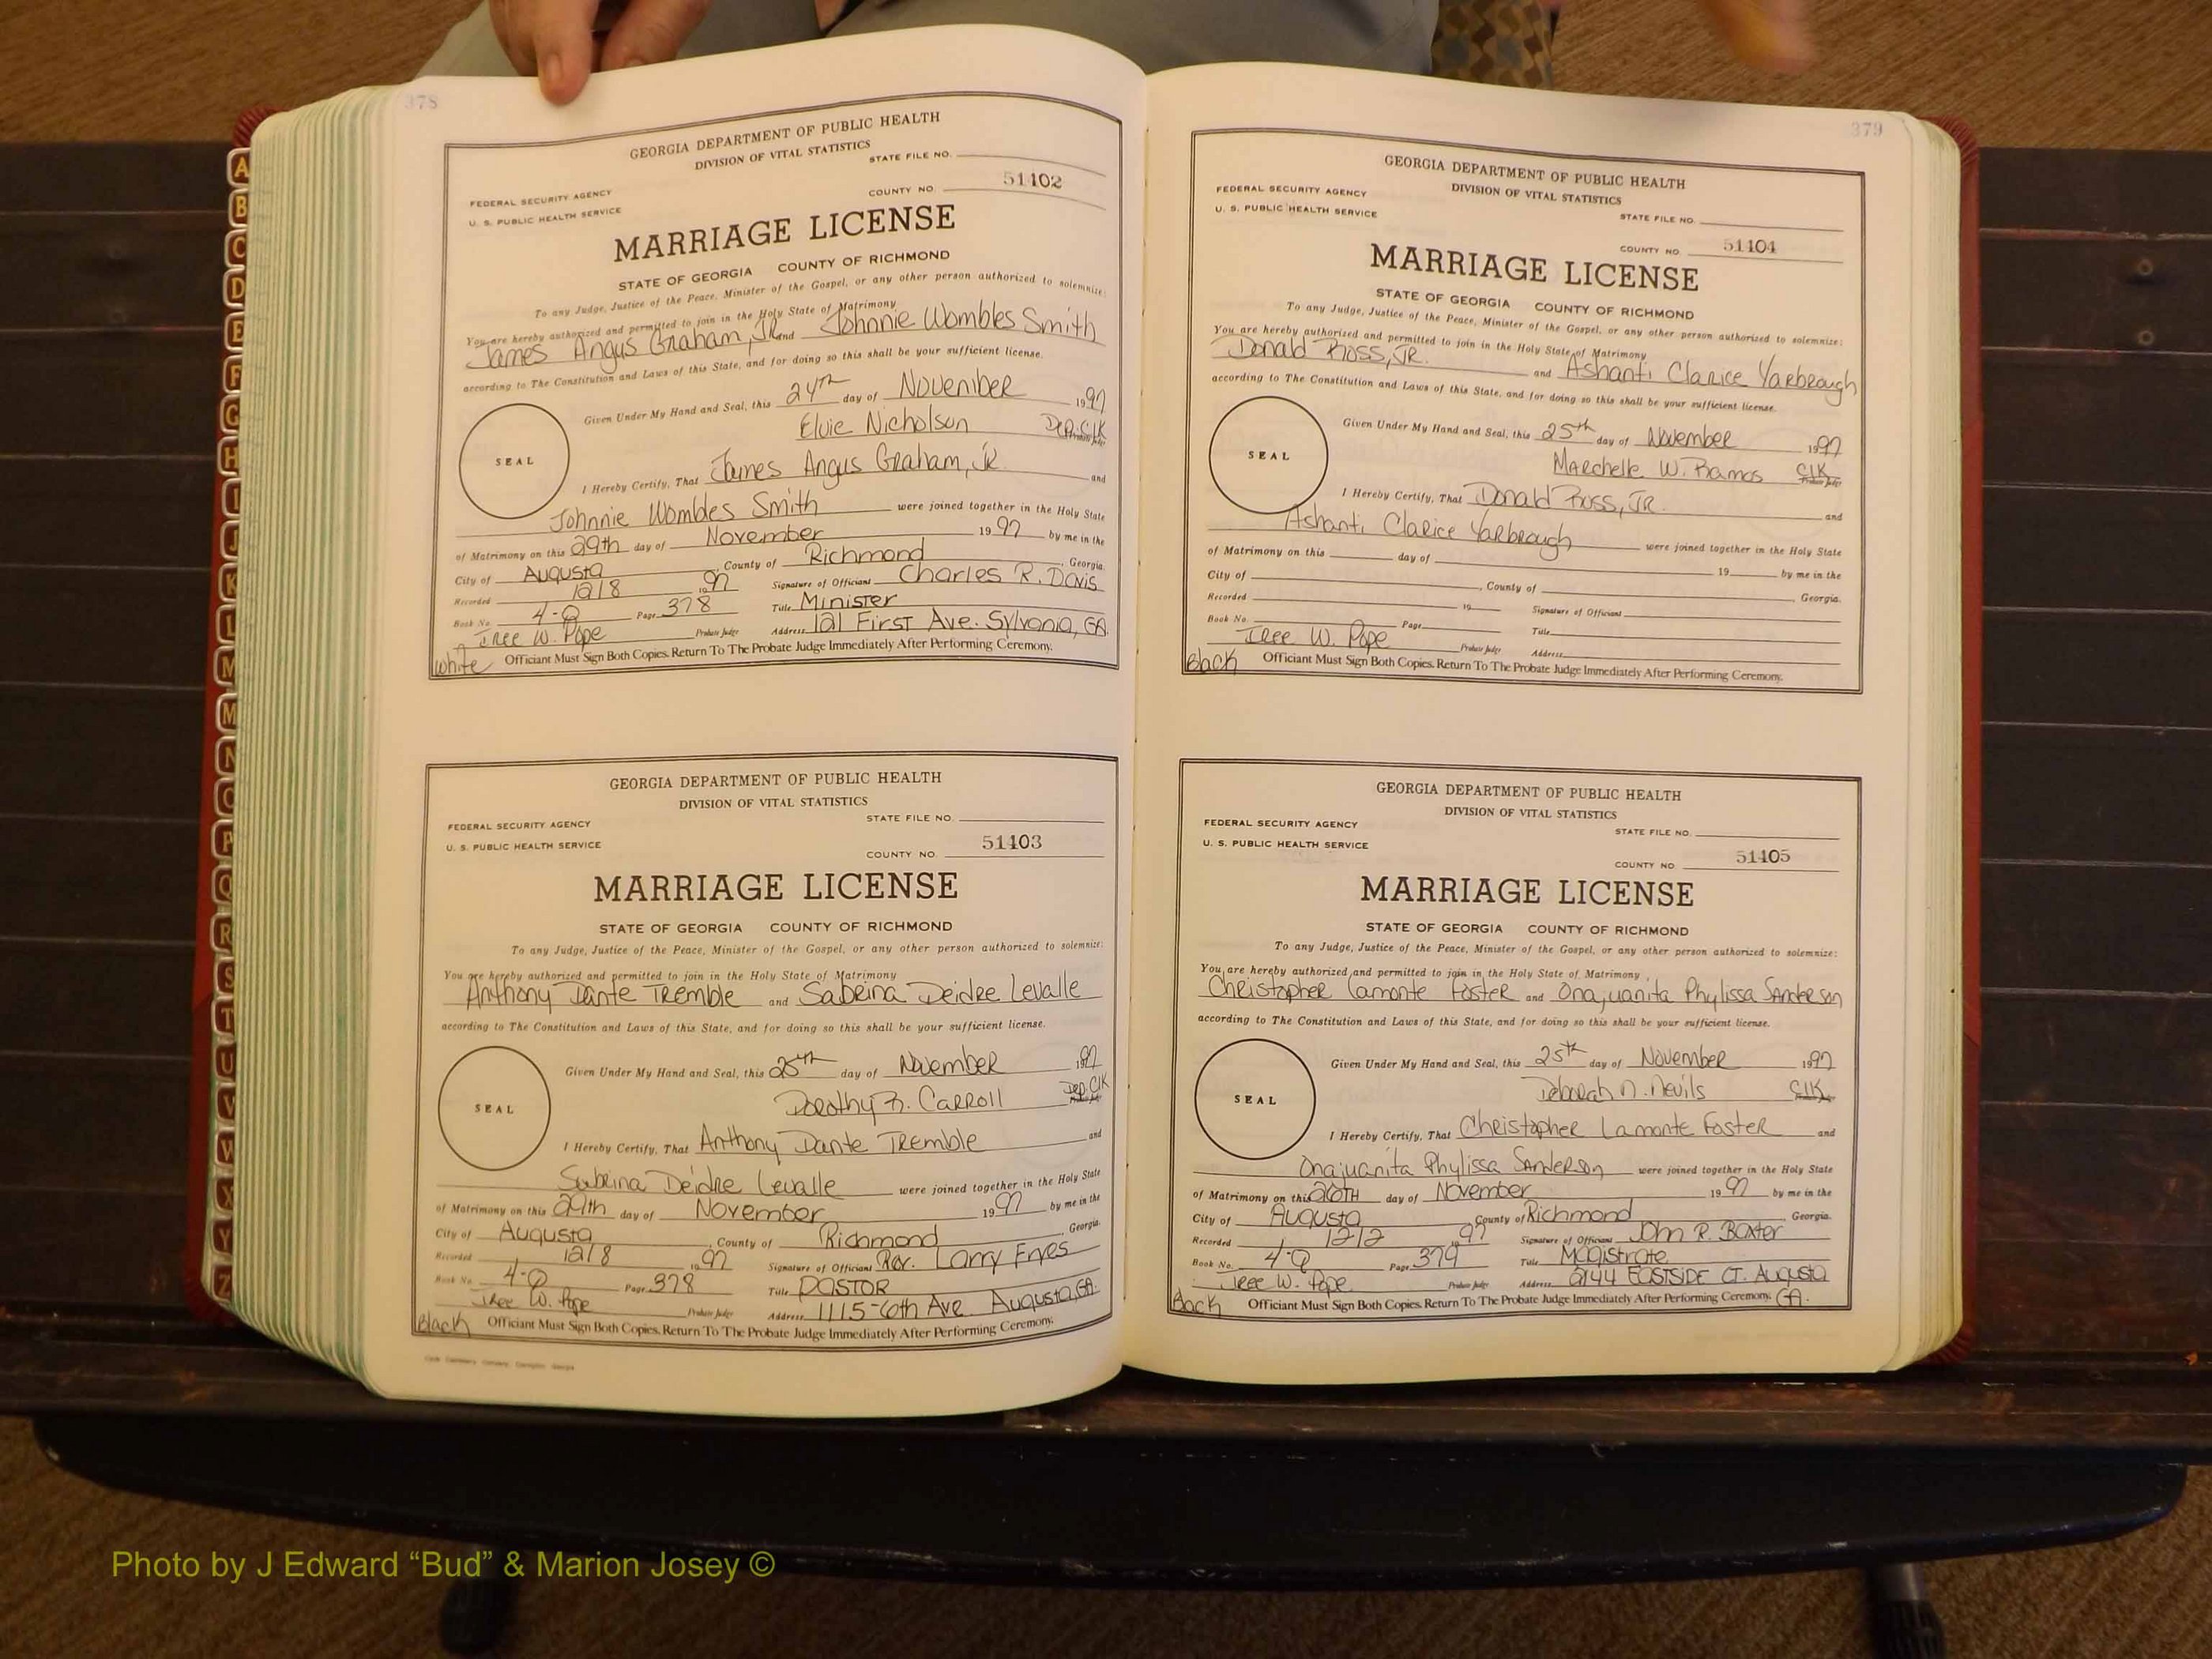 378
GEORGIA DEPARTMENT OF PUBLIC HEALTH
DIVISION OF VITAL STATISTICS
STATE FILE NO.
FEDERAL SECURITY AGENCY
COUNTY NO. 51402
U. S. PUBLIC HEALTH SERVICE
MARRIAGE LICENSE
STATE OF GEORGIA COUNTY OF RICHMOND
To any Judge, Justice of the Peace, Minister of the Gospel, or any other person authorized to solemnize:
You are hereby authorized and permitted to join in the Holy State of Matrimony
James Angus Graham, JR. and Johnnie Wombles Smith
according to The Constitution and Laws of this State, and for doing so this shall be your sufficient license.
Given Under My Hand and Seal, this 24th day of November 1997
Elvie Nicholson Dep. Clk
SEAL
I Hereby Certify, That James Angus Graham, JR. and
Johnnie Wombles Smith were joined together in the Holy State
of Matrimony on this 29th day of November 1997 by me in the
City of Augusta, County of Richmond, Georgia.
Recorded 12/8 1997 Signature of Officiant Charles R. Davis
Book No. 4-Q Page 378 Title Minister
Tree W. Pope Probate Judge Address 121 First Ave. Sylvania, GA
White Officiant Must Sign Both Copies. Return To The Probate Judge Immediately After Performing Ceremony.
GEORGIA DEPARTMENT OF PUBLIC HEALTH
DIVISION OF VITAL STATISTICS
STATE FILE NO.
FEDERAL SECURITY AGENCY
U. S. PUBLIC HEALTH SERVICE
COUNTY NO. 51403
MARRIAGE LICENSE
STATE OF GEORGIA COUNTY OF RICHMOND
To any Judge, Justice of the Peace, Minister of the Gospel, or any other person authorized to solemnize:
You are hereby authorized and permitted to join in the Holy State of Matrimony
Anthony Dante Tremble and Sabrina Deidre Levalle
according to The Constitution and Laws of this State, and for doing so this shall be your sufficient license.
Given Under My Hand and Seal, this 25th day of November 1997
Dorothy B. Carroll Dep. Clk
SEAL
I Hereby Certify, That Anthony Dante Tremble and
Sabrina Deidre Levalle were joined together in the Holy State
of Matrimony on this 29th day of November 1997 by me in the
City of Augusta, County of Richmond Georgia.
Recorded 12/8 1997 Signature of Officiant Rev. Larry Fryes
Book No. 4-Q Page 378 Title PASTOR
Tree W. Pope Probate Judge Address 1115-6th Ave Augusta, GA.
Black Officiant Must Sign Both Copies. Return To The Probate Judge Immediately After Performing Ceremony.
379
GEORGIA DEPARTMENT OF PUBLIC HEALTH
DIVISION OF VITAL STATISTICS
FEDERAL SECURITY AGENCY
U. S. PUBLIC HEALTH SERVICE
STATE FILE NO.
COUNTY NO. 51404
MARRIAGE LICENSE
STATE OF GEORGIA COUNTY OF RICHMOND
To any Judge, Justice of the Peace, Minister of the Gospel, or any other person authorized to solemnize:
You are hereby authorized and permitted to join in the Holy State of Matrimony
Donald Ross, JR. and Ashanti Clarice Yarbrough
according to The Constitution and Laws of this State, and for doing so this shall be your sufficient license.
Given Under My Hand and Seal, this 25th day of November 1997
Marchelle W. Ramos CLK
SEAL
I Hereby Certify, That Donald Ross, JR. and
Ashanti Clarice Yarbrough were joined together in the Holy State
of Matrimony on this day of 19 by me in the
City of , County of , Georgia.
Recorded 19 Signature of Officiant
Book No. Page Title
Tree W. Pope Probate Judge Address
Black Officiant Must Sign Both Copies. Return To The Probate Judge Immediately After Performing Ceremony.
GEORGIA DEPARTMENT OF PUBLIC HEALTH
DIVISION OF VITAL STATISTICS
FEDERAL SECURITY AGENCY
STATE FILE NO.
U. S. PUBLIC HEALTH SERVICE
COUNTY NO 51405
MARRIAGE LICENSE
STATE OF GEORGIA COUNTY OF RICHMOND
To any Judge, Justice of the Peace, Minister of the Gospel, or any other person authorized to solemnize:
You are hereby authorized and permitted to join in the Holy State of Matrimony
Christopher Lamonte Foster and Onajuanita Phylissa Sanderson
according to The Constitution and Laws of this State, and for doing so this shall be your sufficient license.
Given Under My Hand and Seal, this 25th day of November 1997
Deborah N. Nevils CLK
SEAL
I Hereby Certify, That Christopher Lamonte Foster and
Onajuanita Phylissa Sanderson were joined together in the Holy State
of Matrimony on this 26TH day of November 1997 by me in the
City of Augusta County of Richmond Georgia.
Recorded 12/2 1997 Signature of Officiant John R. Baxter
Book No. 4-Q Page 379 Title Magistrate
Tree W. Pope Probate Judge Address 2144 EASTSIDE CT. Augusta
Black Officiant Must Sign Both Copies. Return To The Probate Judge Immediately After Performing Ceremony. GA.
A
B
C
D
E
F
G
H
I
J
K
L
M
M
N
O
P
Q
R
S
T
U
V
W
X
Y
Z
Photo by J Edward “Bud” & Marion Josey ©